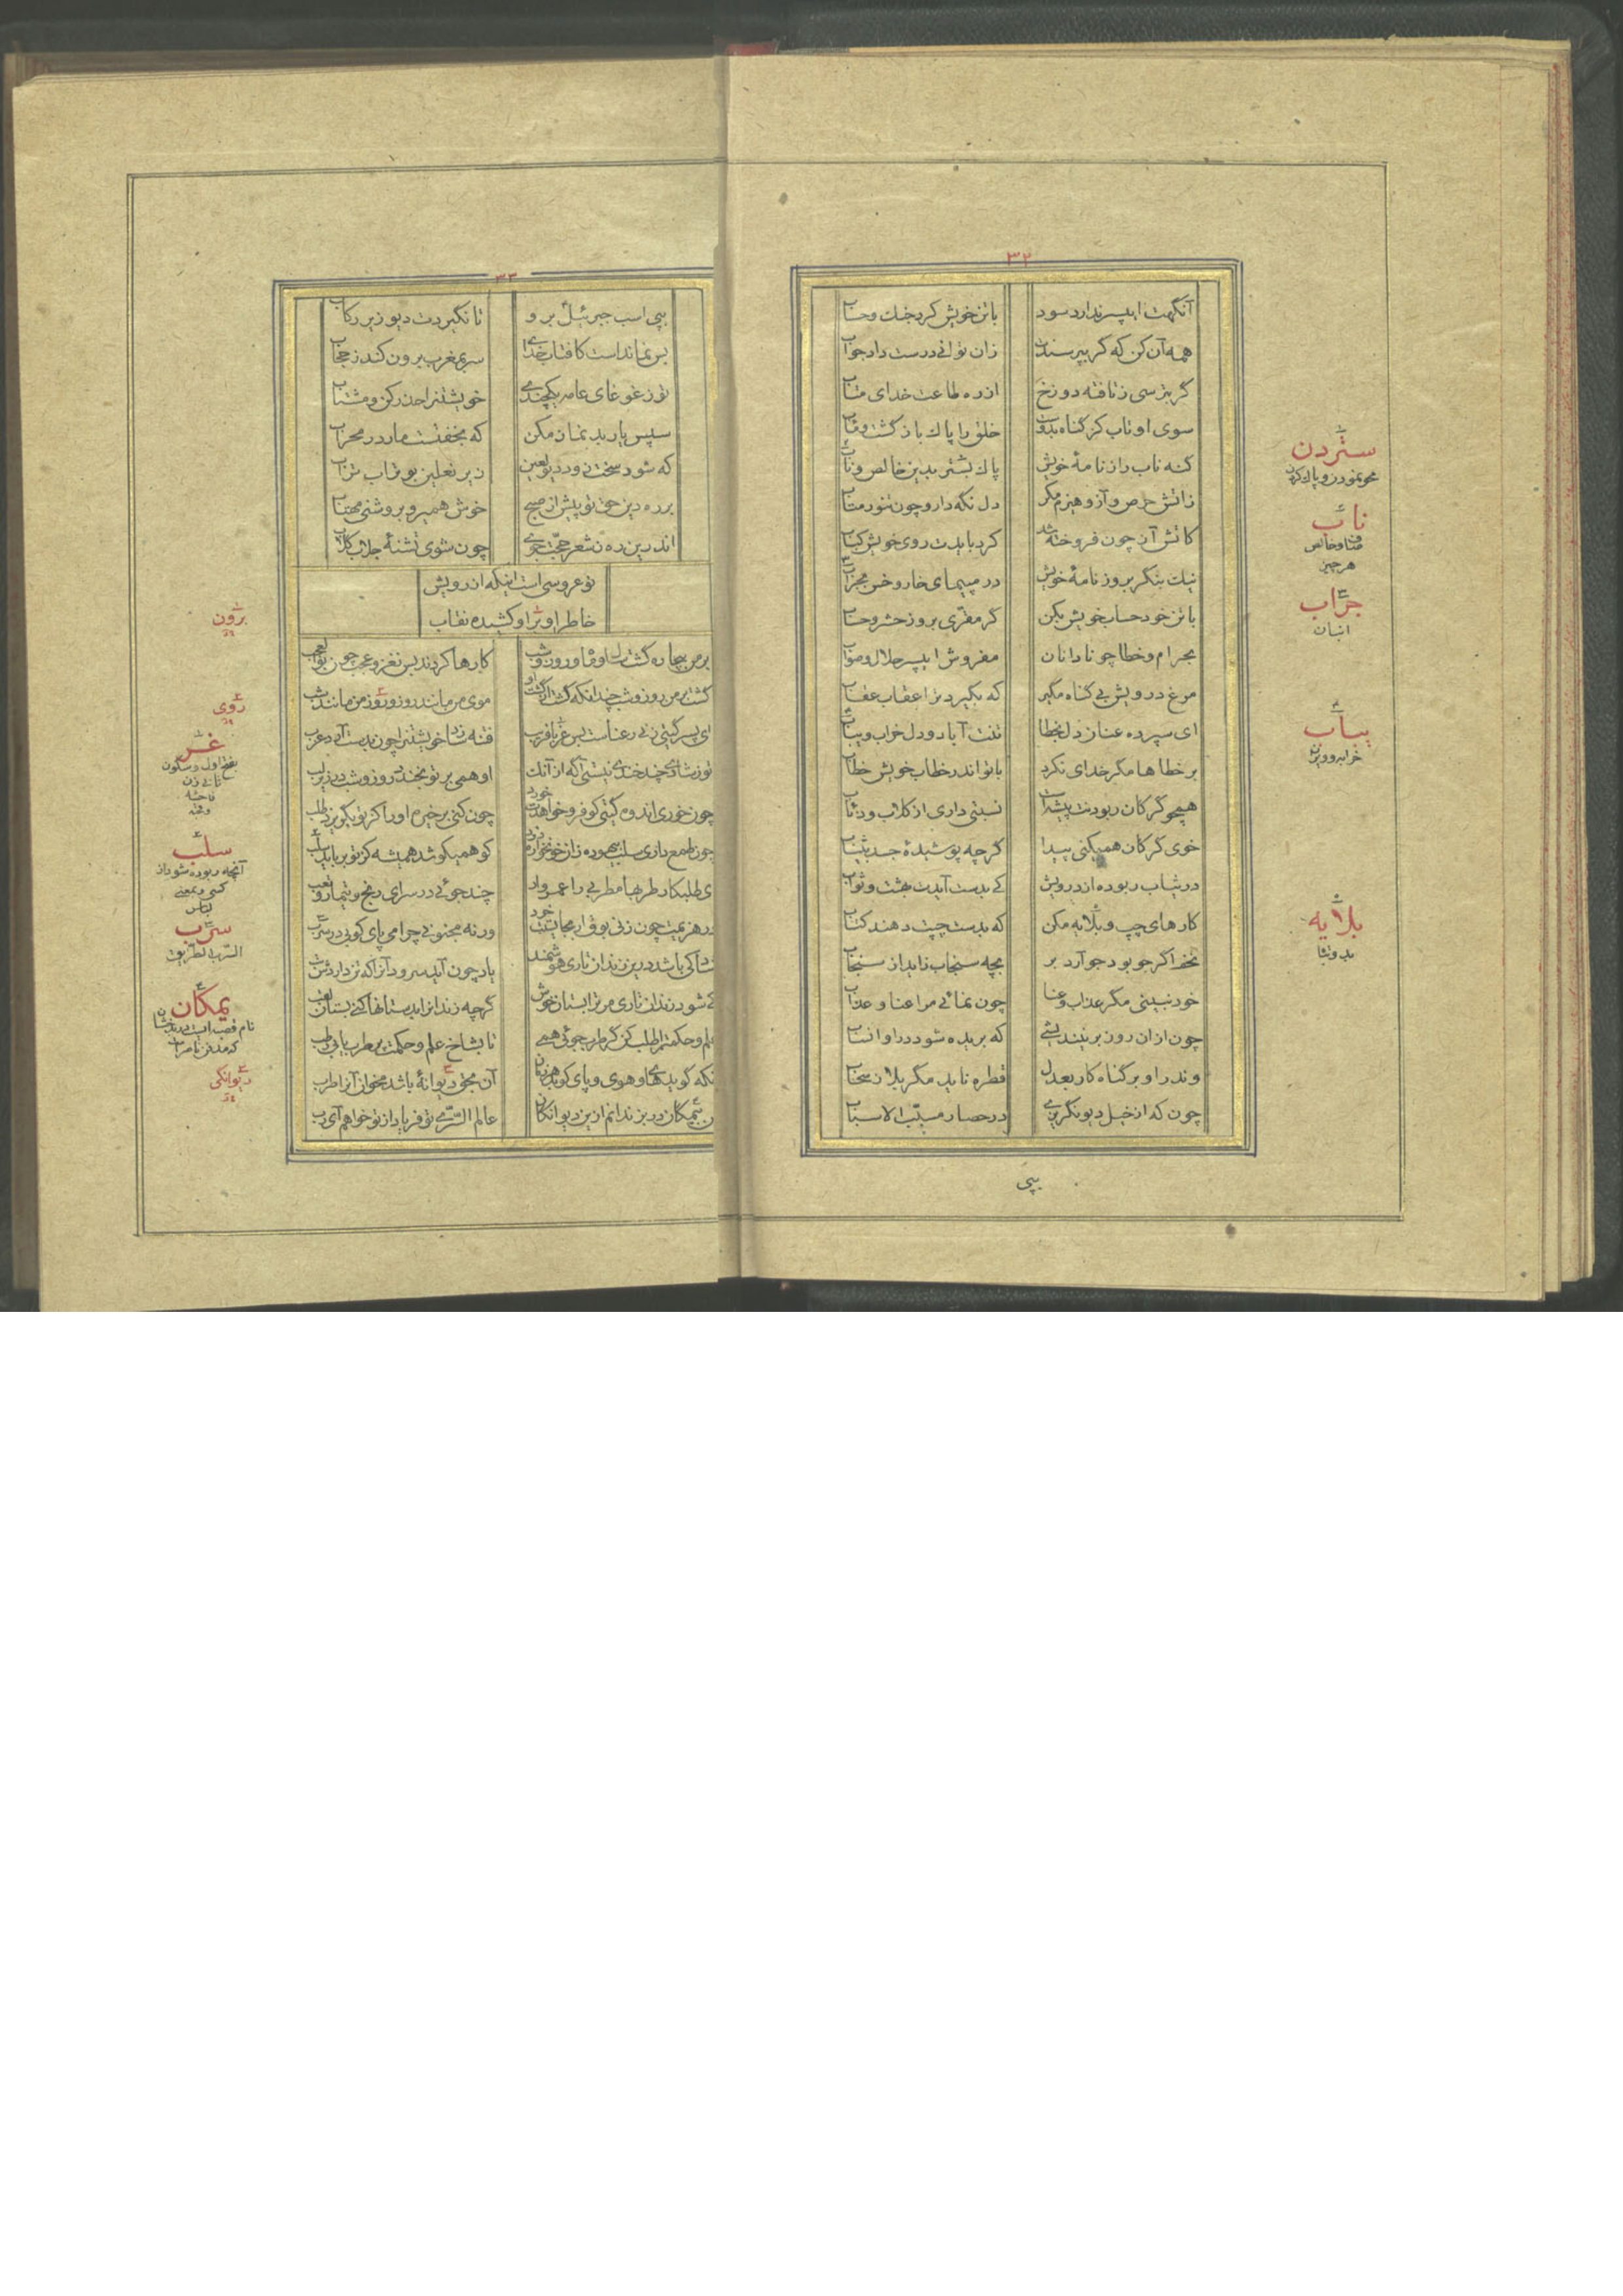 ٣٢
آنگهت ای پسر ندارد سود با تن خویش کرد جنگ و حساب
همه آن کن که گر بپرسندت زان توانی درست داد جواب
گر بترسی ز تافته دوزخ از ره طاعت خدای متاب
سوی او تاب کز گناه بدوست خلق را پاک بازگشت و مآب
گنه ناب را ز نامهٔ خویش پاک بستر بدین خالص و ناب
ز آتش حرص و آز و هیزم مکر دل نگه دار و چون تنور متاب
کاتش آز چون فروخته شد کرد بایدت روی خویش کباب
نیک بنگر بروزنامهٔ خویش در مپیمای خار و خس بجراب
با تن خود حساب خویش بکن گر مقری بروز حشر و حساب
بحرام و خطا چو نادانان مفروش ای پسر حلال و صواب
مرغ درویش بی گناه مگیر که بگیرد ترا عقاب عقاب
ای سپرده عنان دل بخطا تنت آباد و دل خراب و یباب
بر خطاها مگر خدای نکرد با تو اندر خطاب خویش خطاب
همچو گرگان ربودنت پیشه است نسبتی داری از کلاب و ذئاب
خوی گرگان همیکنی پیدا گرچه پوشیدهٔ جسد بثیاب
در ثیاب ربوده از درویش کی بدست آیدت بهشت و ثواب
کارهای چپ و بلایه مکن که بدست چپت دهند کتاب
تخم اگر جو بود جو آرد بر بچه سنجاب زاید از سنجاب
خود نبینی مگر عذاب و عنا چون نمائی مرا عنا و عذاب
چون از آن روز برنیندیشی که بریده شود در او انساب
وندر او بر گناه کار بعدل قطره ناید مگر بلا ز سحاب
چون که از خیل دیو نگریزی در حصار مسبب الاسباب
بپی
ستردن
محو نمودن و پاک کردن
ناب
صاف و خالص
هر چیز
جراب
انبان
یباب
خراب و ویران
بلایه
بد و تباه
٣٣
بپی اسب جبرئیل برو تا نگیردت دیو زیر رکاب
بس نماندست کافتاب خدای سر بمغرب برون کند ز حجاب
تو ز غوغای عامه یکچندی خویشتن را حذر کن و مشتاب
سپس یار بد نماز مکن که بخفتست مار در محراب
که شود سخت زود دیو لعین زیر نعلین بوتراب تراب
بر ره دین حق تو پیش از صبح خوش همیرو بروشنی مهتاب
اندرین ره ز شعر حجت جوی چون شوی تشنهٔ جلاب گلاب
نوعروسی است اینکه از رویش
خاطر او ترا و کشیده نقاب
بر من بیچاره گشت سال و ماه و روز و شب کارها کردند بس نغز و عجب چون بوالعجب
گشت بر من روز و شب چندانکه گشت از گشت او موی من مانند روز و روی من مانند شب
ای پسر گیتی زنی رعناست بس غر با فریب فتنه سازد خویشتن را چون بدست آرد عزب
تو ز شادی چند خندی نیستی آگه از آنک او همی بر تو بخندد روز و شب در زیر لب
چون خوری اندوه گیتی کو فرو خواهدت خورد چون کنی بر خیره او را کز تو بگریزد طلب
چون طمع داری سلب بیهوده زان خونخواره دزد کو همیکوشد همیشه کز تو برباید سلب
ای طلبکار طربها مر طرب را غمرواد چند جوئی در سرای رنج و تیمار و تعب
در هزیمت چون زنی بوق ار بجایستت خرد ورنه مجنونی چرا می پای کوبی در سرب
شاد کی باشد درین زندان تاری هوشمند یاد چون آید سرود آنرا که تن داردش تب
کی شود زندان تاری مر ترا بستان خوش گرچه زندان را بدستانها کنی بستان لقب
علم و حکمت را طلب کن گر طرب جوئی همی تا بشاخ علم و حکمت بر طرب یابی رطب
آنکه گوید های و هوی و پای کوبد هر زمان آن بحق دیوانهٔ باشد مخوان آنرا طرب
من بیمگان در بزندانم ازین دیوانگان عالم السرّی تو فریاد از تو خواهم آی رب
برون
روی
غر
بفتح اول و سکون
ثانی زن
فاحشه
و قحبه
سلب
آنچه ربوده شود از
کسی و بمعنی
لباس
سرب
السّرب الطّریق
یمکان
نام قصبه ایست در بدخشان
که مدفن ناصر است
دیوانگی